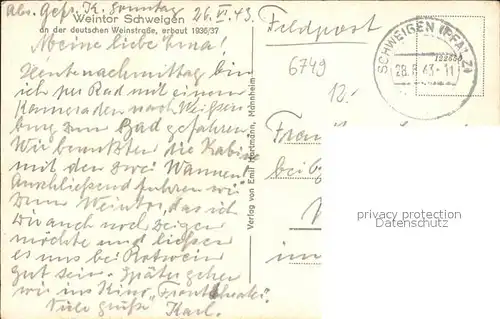 Abs. Gefr. K. Sonntag 26.VI.43.
Weintor Schweigen
an der deutschen Weinstraße, erbaut 1936/37
Feldpost
SCHWEIGEN (PFALZ)
28.6.43-11
122650
6749
12.-
Meine liebe Erna!
Heutenachmittag bin
ich per Rad mit einem
Kameraden nach Weißen-
burg zum Bad gefahren.
Wir benutzten die Kabine
mit den zwei Wannen.
Anschließend fuhren wir
zum Weintor, das ich
dir auch noch zeigen
möchte und ließen
es uns bei Rotwein
gut sein. Später gehen
wir ins Kino "Fronttheater".
Viele Grüße Karl.
Verlag von Emil Hartmann, Mannheim
privacy protection
Datenschutz